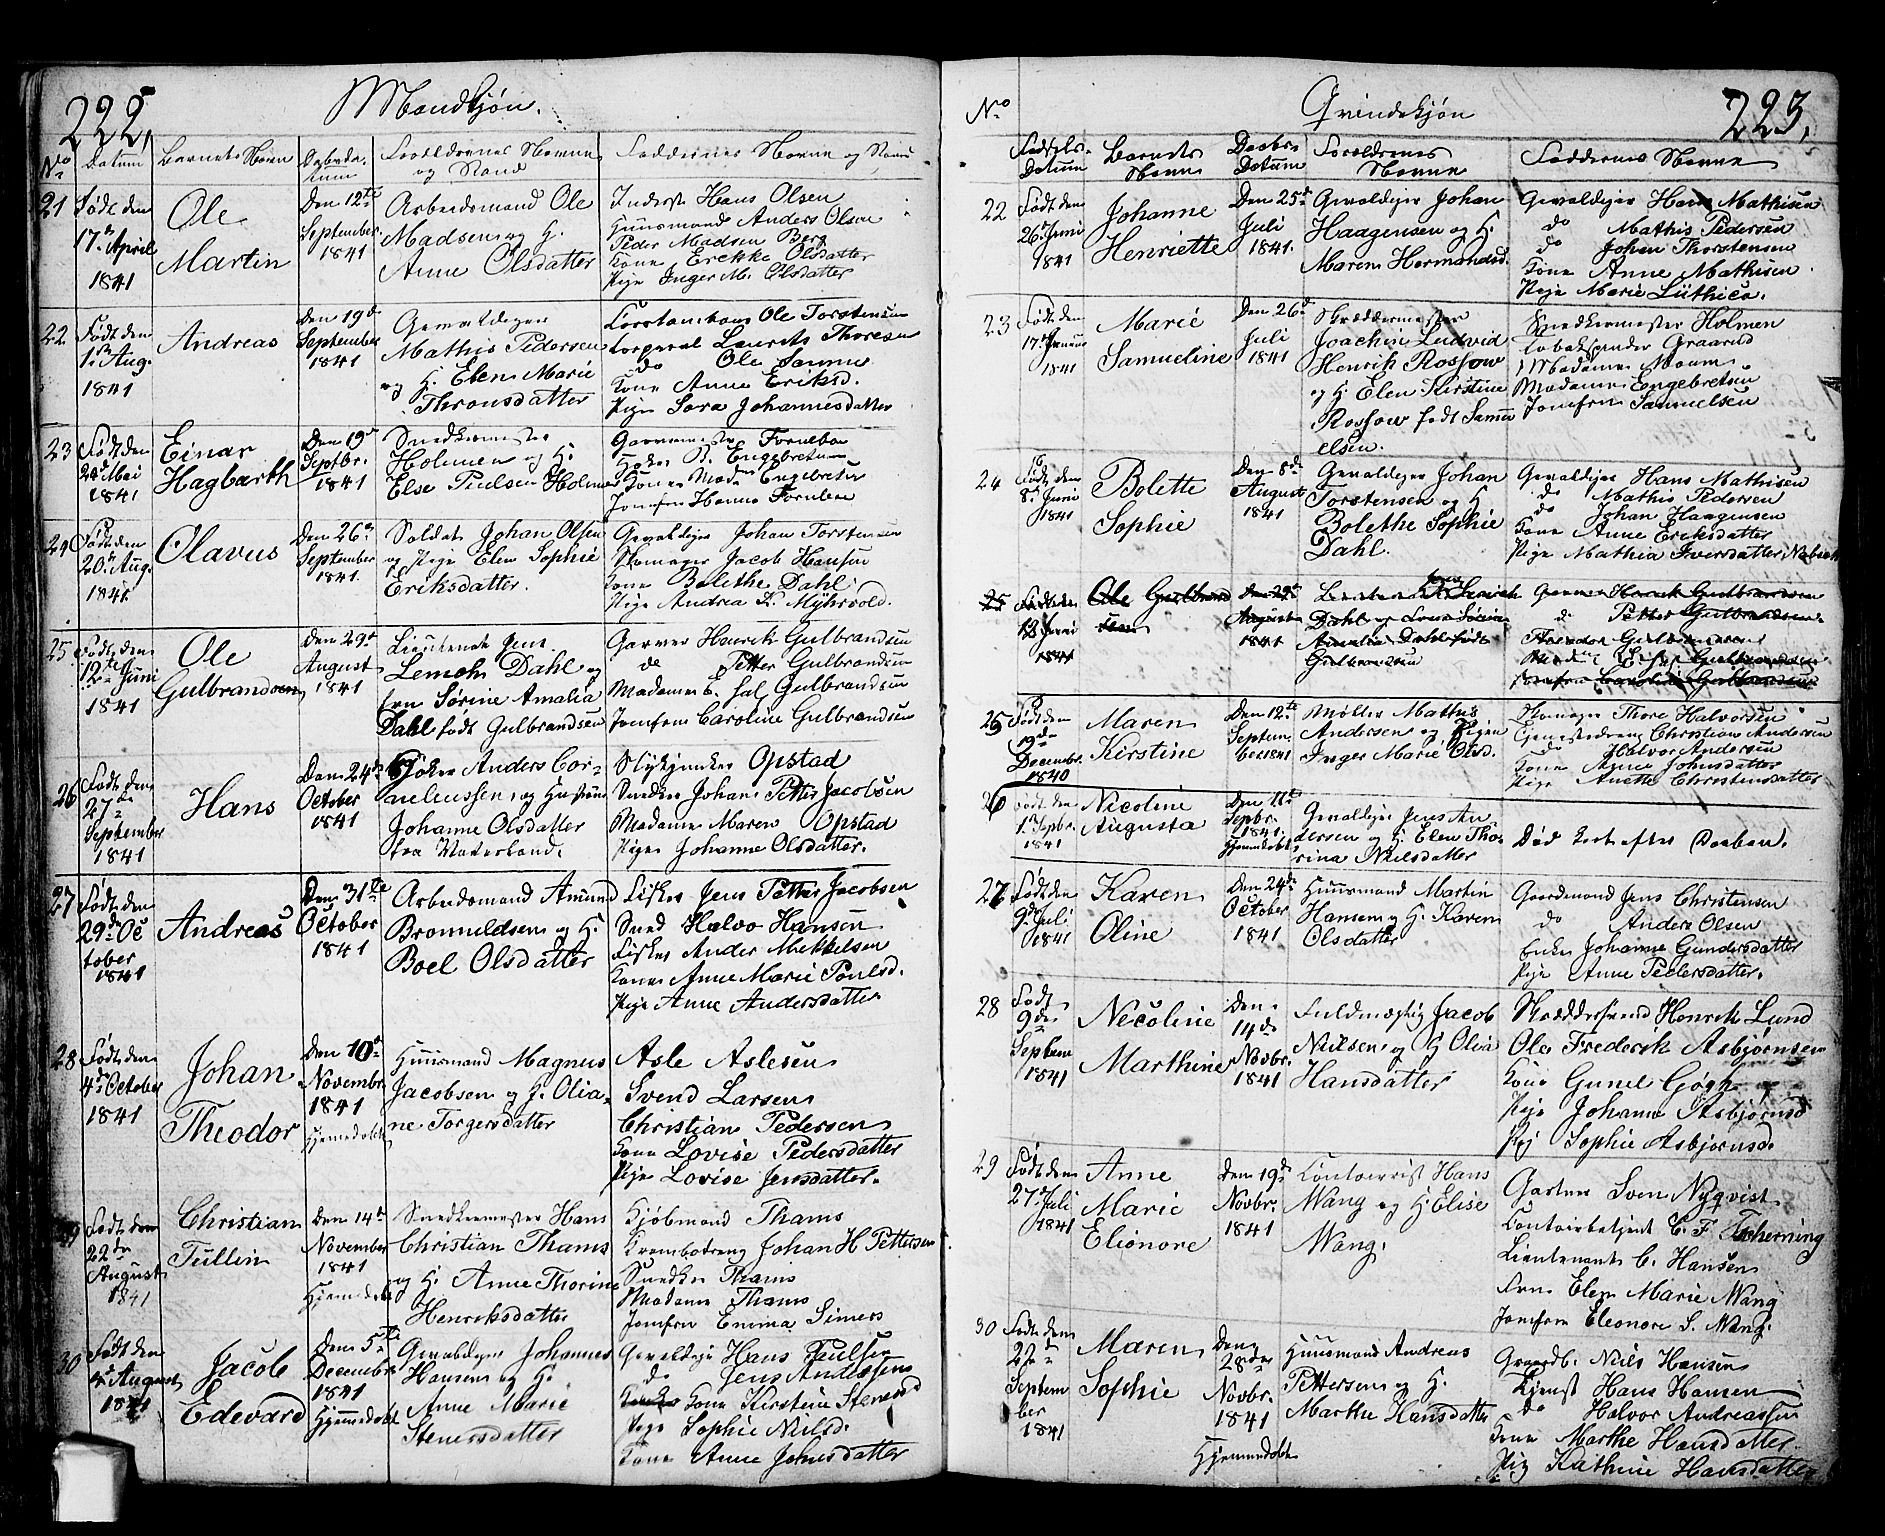 222.
Mandkjøn.
No Datum Barnets Navn Daabsda-
tum Forældrenes Navne
og Stand Faddernes Navne og Stand
21 Født den
17de April
1841
Ole
Martin
Den 12te
September
1841
Arbeidsmand Ole
Madsen og H.
Anne Olsdatter
Inderst Hans Olsen
Huusmand Anders Olsen
Peder Madsen Berg
Kone Olsdatter
Pige Inger M. Olsdatter
22 Født den
1ste Aug.
1841
Andreas
Den 19de
September
1841
Gevaldiger
Mathis Pedersen
og H. Elen Marie
Thronsdatter
Ole Torstensen
Corporal Laurits Thoresen
do Ole Sanne
Kone Anne Eriksd.
Pige Sara Johannesdatter
23 Født den
24de Mai
1841
Einar
Hagbarth
Den 19de
Septbr.
1841
Snedkermester
Holmen og H.
Else Poulsen Holmen
Garvermester Fornebo
Høker B. Engebretsen
Kone Mad. Engebretsen
Jomfru Hanna Fornebo
24 Født den
20de Aug.
1841
Olavus
Den 26de
September
1841.
Soldat Johan Olsen
og Pige Elen Sophie
Eriksdatter.
Gevaldiger Johan Torstensen
Skomager Jacob Hansen
Kone Bolethe Dahl
Pige Andrea K. Myhrvold.
25 Født den
12te Juni
1841
Ole
Gulbrandsen
Den 29de
August
1841
Lieutenant Jens
Lemch Dahl og
Fru Sørine Amalia
Dahl født Gulbrandsen
Garver Henrik Gulbrandsen
do Petter Gulbrandsen
Madame E. Gulbrandsen
Jomfru Caroline Gulbrandsen
26 Født den
27de
September
1841
Hans
Den 24de
October
1841
Høker Anders Cor-
neliussen og Hustrue
Johanne Olsdatter
fra Vaterland.
Opstad
Snedker Johan Petter Jacobsen
Madame Maren Opstad
Pige Johanne Olsdatter.
27 Født den
29de Oc
tober
1841
Andreas
Den 31te
October
1841
Arbeidsmand Amund
Bromuldsen og H.
Boel Olsdatter
Fisker Jens Petter Jacobsen
Sned Halvo Hansen
Fisker Ander Mikkelsen
Kone Anne Marie Poulsd.
Pige Anne Andersdatter
28 Født den
4de October
1841
Johan
Theodor
Den 10de
Novembr.
1841
Hjemedøbt
Huusmand Magnus
Jacobsen og H. Olia-
ne Torgersdatter
Asle Aslesen
Svend Larsen
Christian Pedersen
Kone Lovise Pedersdatter
Pige Lovise Jensdatter.
29 Født den
22de
August
1841
Christian
Tullin
Den 14de
November
1841
Hjemedøbt
Snedkermester Hans
Christian Thams
og H. Anne Thorine
Henriksdatter
Kjøbmand Thams
Krambodreng Johan H Pettersen
Snedker Thams
Madame Thams
Jomfru Emma Simers
30 Født den
August
1841
Jacob
Edevard
Den 5te
Decembr.
1841
Hjemmedøbt
Gevaldiger Johannes
Hansen og H.
Anne Marie
Stenersdatter
Gevaldiger Hans Paulsen
do Jens Andersens
Kone Kirstine Stenersd
Pige Sophie Nielsd.
Kone Anne Johnsdatter
No
Qvindekjøn
223.
Fødsels
Datum Barnets
Navn Daabs
Datum Forældrenes
Navne Faddernes Navne
22 Født den
26de Juni
1841
Johanne
Henriette
Den 25de
Juli
1841.
Gevaldiger Johan
Haagensen og H.
Maren Hermandsd.
Gevaldiger Hans Mathisen
do Mathis Pedersen
do Johan Thorstensen
Kone Anne Mathisen
Pige Marie
23 Født den
17de
1841
Marie
Samueline
Den 26de
Juli
1841
Skræddermester
Joachim Ludvid
Henrik Rossow
og H. Elen Kirstine
Rossow født Samu
elsen.
Snedkermester Holmen
Tobakspinder Graarud
Madame
Madame Engebretsen
Jomfru Samuelsen
24 Født den
8de Juni
1841
Bolette
Sophie
Den 8de
August
1841
Gevaldiger Johan
Torstensen og H
Bolethe Sophie
Dahl.
Gevaldiger Hans Mathisen
do Mathis Pedersen
do Johan Haagensen
Kone Anne Eriksdatter
Pige Mathia Iversdatter
25 Født den
12 Juni
1841
Ole Gulbrand
sen
Den 29de
August
1841
Dahl og
Amalia Dahl født
Gulbrandsen
Garver Henrik Gulbrandsen
do Petter Gulbrandsen
Gulbrandsen
Gulbrandsen
Jomfru Caroline Gulbrandsen
25 Født den
19de
Decembr.
1840
Maren
Kirstine
Den 12te
Septem
ber 1841
Møller Mathis
Andersen og Pigen
Inger Marie Olsd.
Skomager Thore Halvorsen
Tjenestedreng Christian Andersen
do Halvor Andersen
Kone Anne Johnsdatter
Pige Anette Christensdatter
26 Født den
1ste Sepbr.
1841
Nicoline
Augusta
Den 11te
Sepbr.
1841.
Hjemedøbt
Gevaldiger Jens An
dersen og H. Elen Tho-
rina Nielsdatter
Død kort efter Daaben.
27 Født den
9de Juli
1841
Karen
Oline
Den 24de
October
1841
Huusmand Martin
Hansen og H. Karen
Olsdatter
Gaardmand Jens Christensen
do Anders Olsen
Enke Johanne Gundersdatter
Pige Anne Pedersdatter.
28 Født
9de
Septem
1841
Nicoline
Marthine
Den
14de
Novbr.
1841
Fuldmægtig Jacob
Nielsen og H Olia
Hansdatter
Henrik Lund
Ole Frederik Asbjørnsen
Kone Gunel
Pige Johanne Asbjørnsd
Pig Sophie Asbjørnsd.
29 Født den
27de Juli
1841
Anne
Marie
Elionore
Den 19de
Novbr.
1841
Contoirist Hans
Wang og H Elise
Wang.
Gartner Sven Nyqvist
Contoirbetjent C. F. Tscherning
Lieutenant C. Hansen
Fru Elen Marie Wang
Jomfru Eleonore S. Wang.
30 Født den
22de
Septem
ber
1841
Maren
Sophie
Den
28de
Novbr.
1841
Hjemmedøbt
Huusmand Andreas
Pettersen og H.
Marthe Hansdatter
Gaardb. Niels Hansen
Tjenst Hans Hansen
Do Halvor Andreassen
Kone Marthe Hansdatter
Pig Kathrine Hansdatter